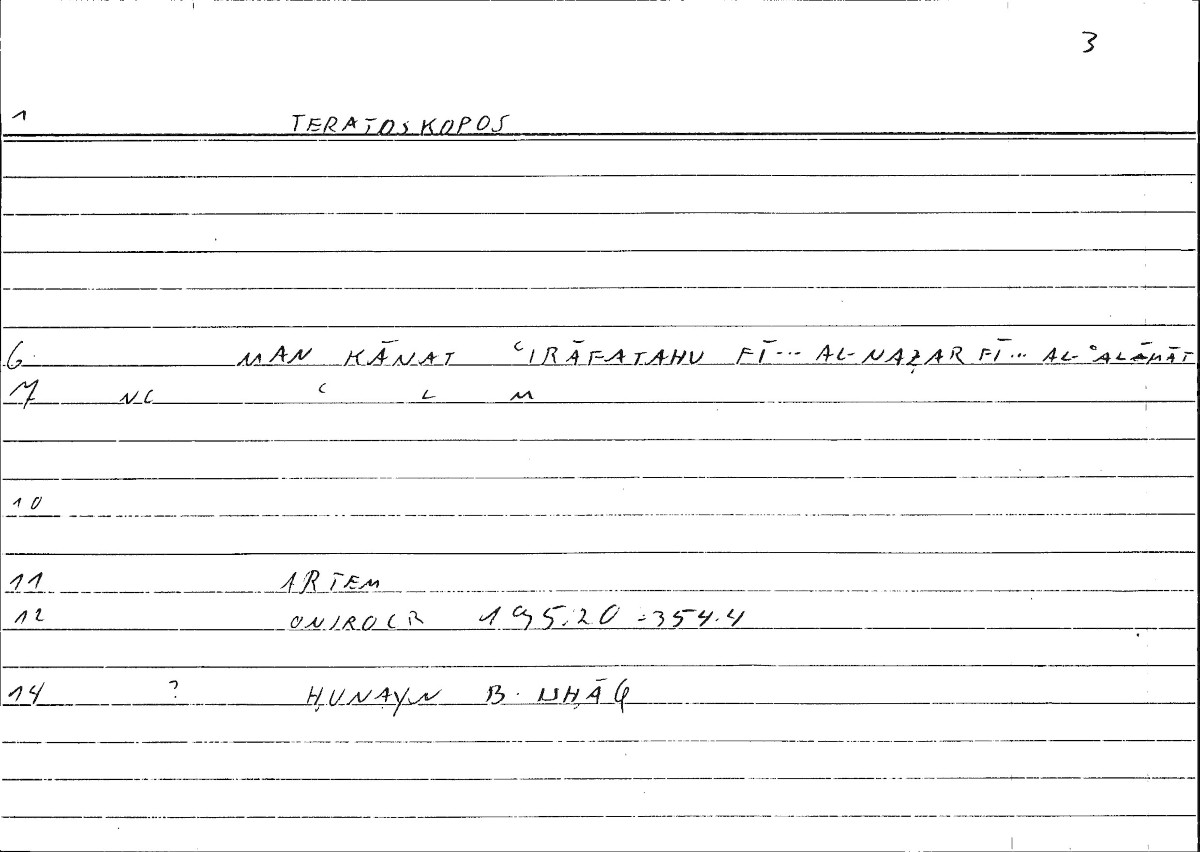 3
1 TERATOSKOPOS
6 MAN KĀNAT ʿIRĀFATAHU FĪ... AL-NAẒAR FĪ... AL-ʿALĀMĀT
7 NC ʿ L M
10
11 ARTEM
12 ONIROCR 195.20 = 354.4
14 ? ḤUNAYN B. ISḤĀQ